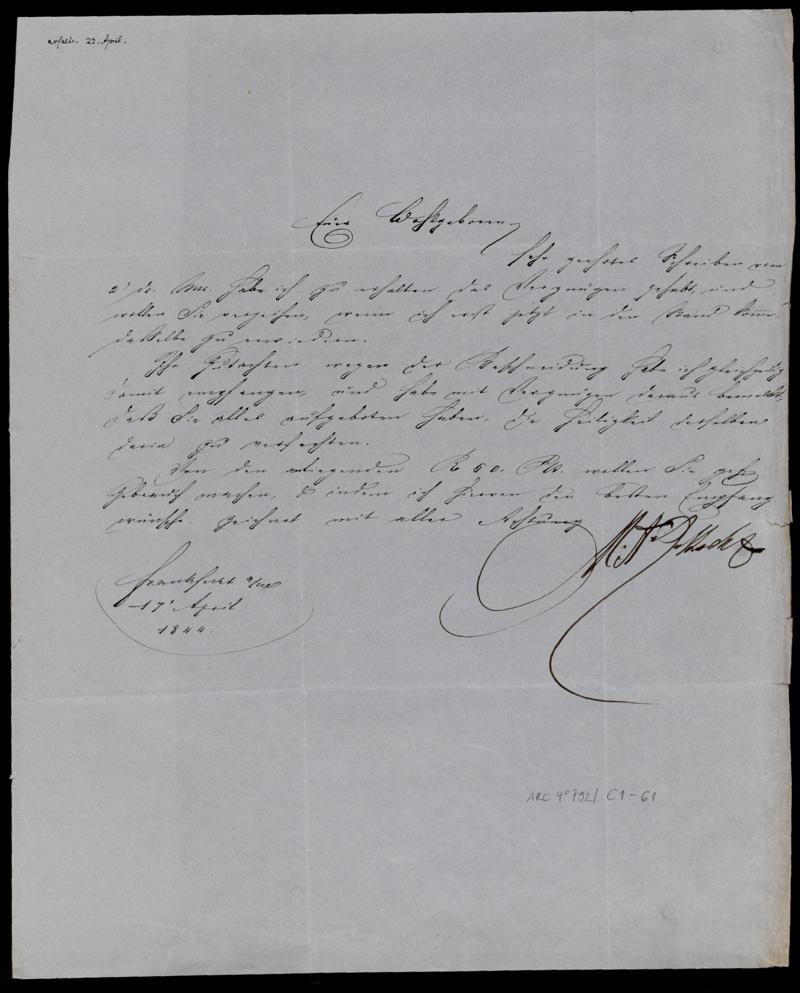 erhalten 22. April.
Euer Wohlgeboren
Sehr geehrtes Schreiben vom
2' ds. Mts. habe ich zu erhalten das Vergnügen gehabt, und
wollen Sie verzeihen, wenn ich erst jetzt in den Stand komme,
dasselbe zu erwiedern.
Ihr Gutachten wegen der Beschneidung habe ich gleichzeitig
damit empfangen, und habe mit Vergnügen daraus bemerkt,
daß Sie alles aufgeboten haben, die Heiligkeit derselben
darin zu verfechten.
Von den anliegenden 50. wollen Sie gefl
Gebrauch machen, & indem ich hievon den besten Empfang
wünsche, zeichnet mit aller Achtung
Frankfurt a/M
17' April
1844.
ARC 4° 792/ C1-61